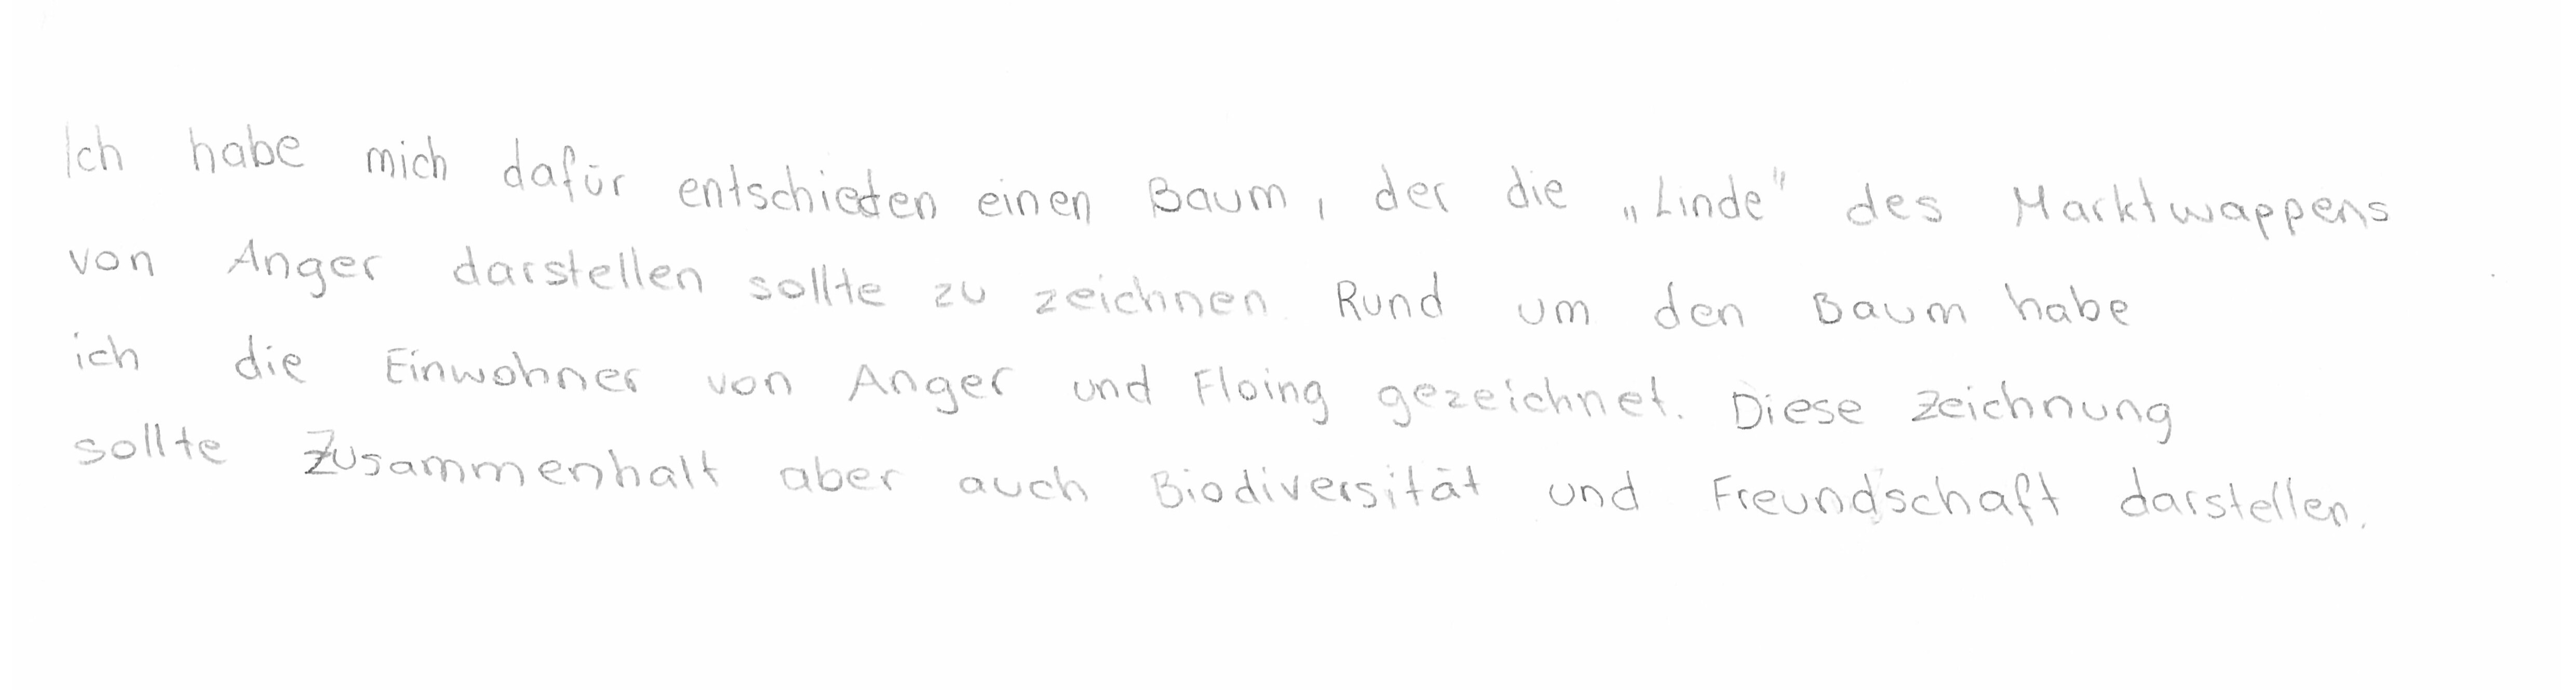 Ich habe mich dafür entschieden einen Baum, der die „Linde" des Marktwappens
von Anger darstellen sollte zu zeichnen. Rund um den Baum habe
ich die Einwohner von Anger und Floing gezeichnet. Diese Zeichnung
sollte Zusammenhalt aber auch Biodiversität und Freundschaft darstellen.